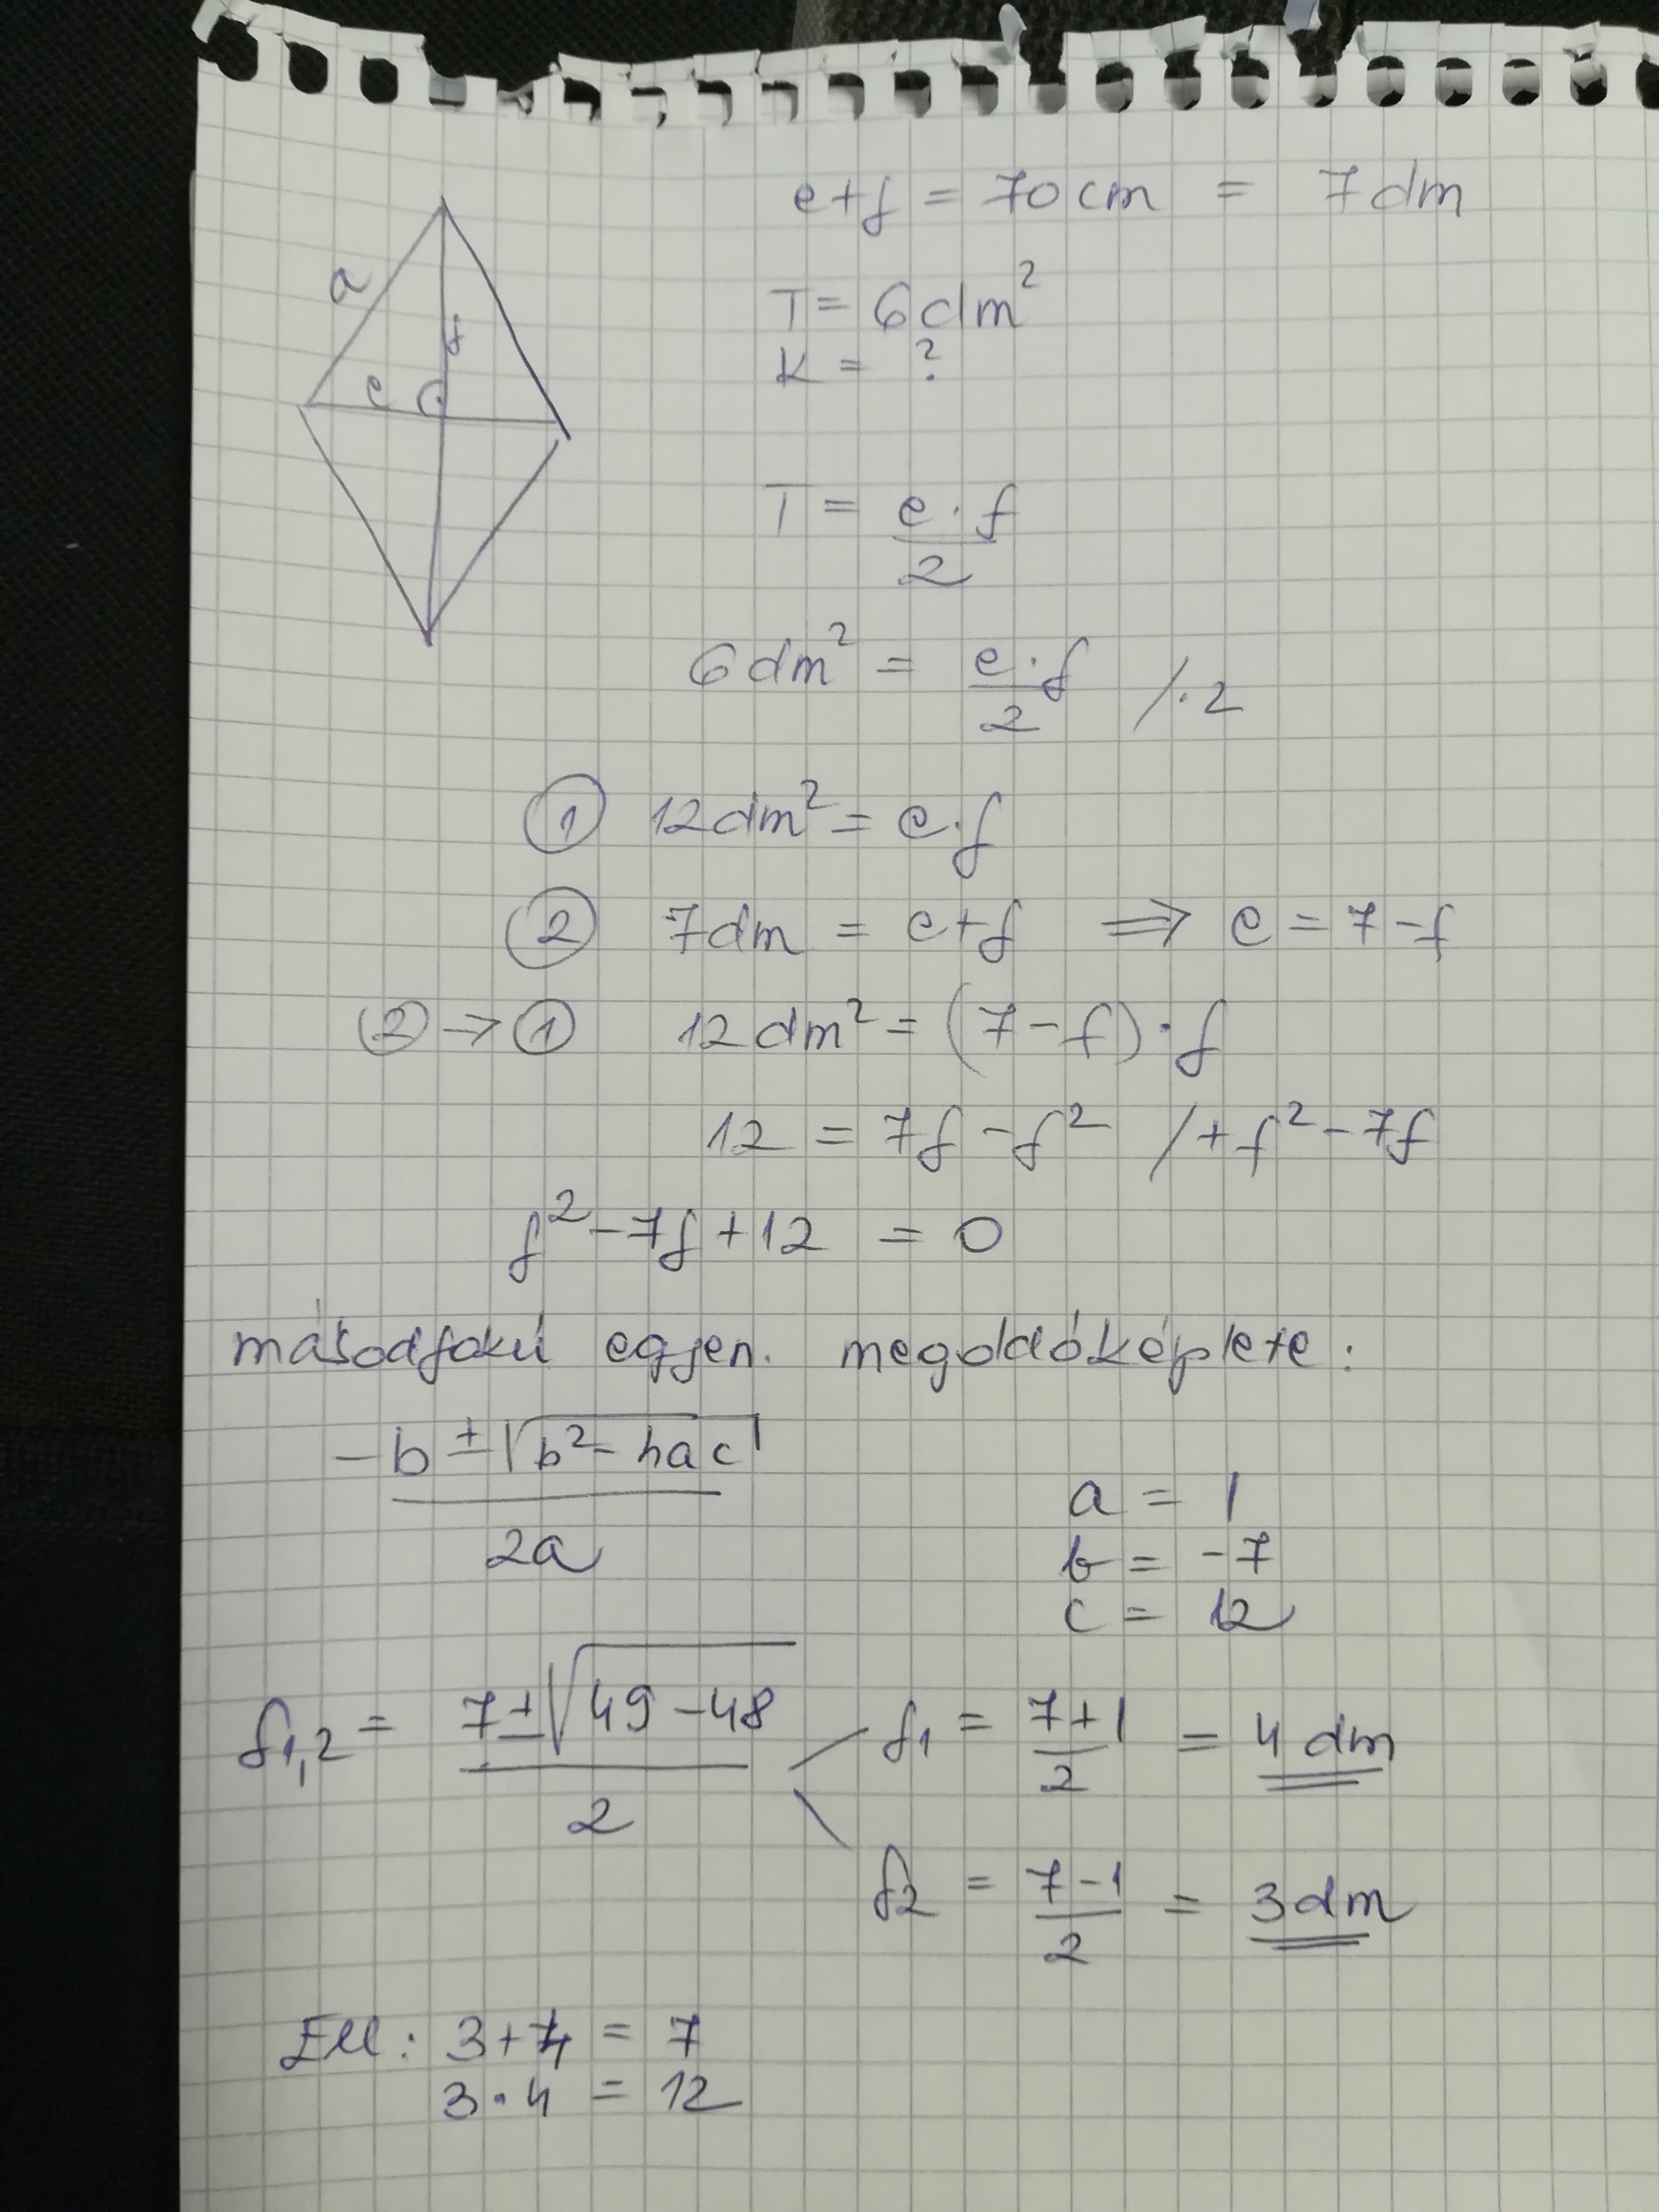 e+f = 70 cm = 7 dm
a
f
e
T = 6 dm²
K = ?
T = e·f/2
6 dm² = e·f/2 /·2
① 12 dm² = e·f
② 7 dm = e+f ⇒ e = 7-f
② → ① 12 dm² = (7-f)·f
12 = 7f - f² / +f² - 7f
f² - 7f + 12 = 0
másodfokú egyen. megoldóképlete:
-b ± √b² - 4ac / 2a
a = 1
b = -7
c = 12
f1,2 = 7 ± √49 - 48 / 2
f1 = 7+1/2 = 4 dm
f2 = 7-1/2 = 3 dm
Ell: 3+4 = 7
3·4 = 12